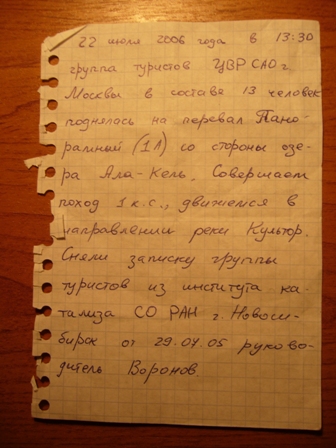 22 июля 2006 года в 13:30
группа туристов ЦВР САО г.
Москвы в составе 13 человек
поднялась на перевал Пано-
рамный (1А) со стороны озе-
ра Ала-Кель, Совершает
поход 1 к.с., движемся в
направлении реки Культор.
Сняли записку группы
туристов из института ка-
тализа СО РАН г. Новоси-
бирск от 29.07.05 руково-
дитель Воронов